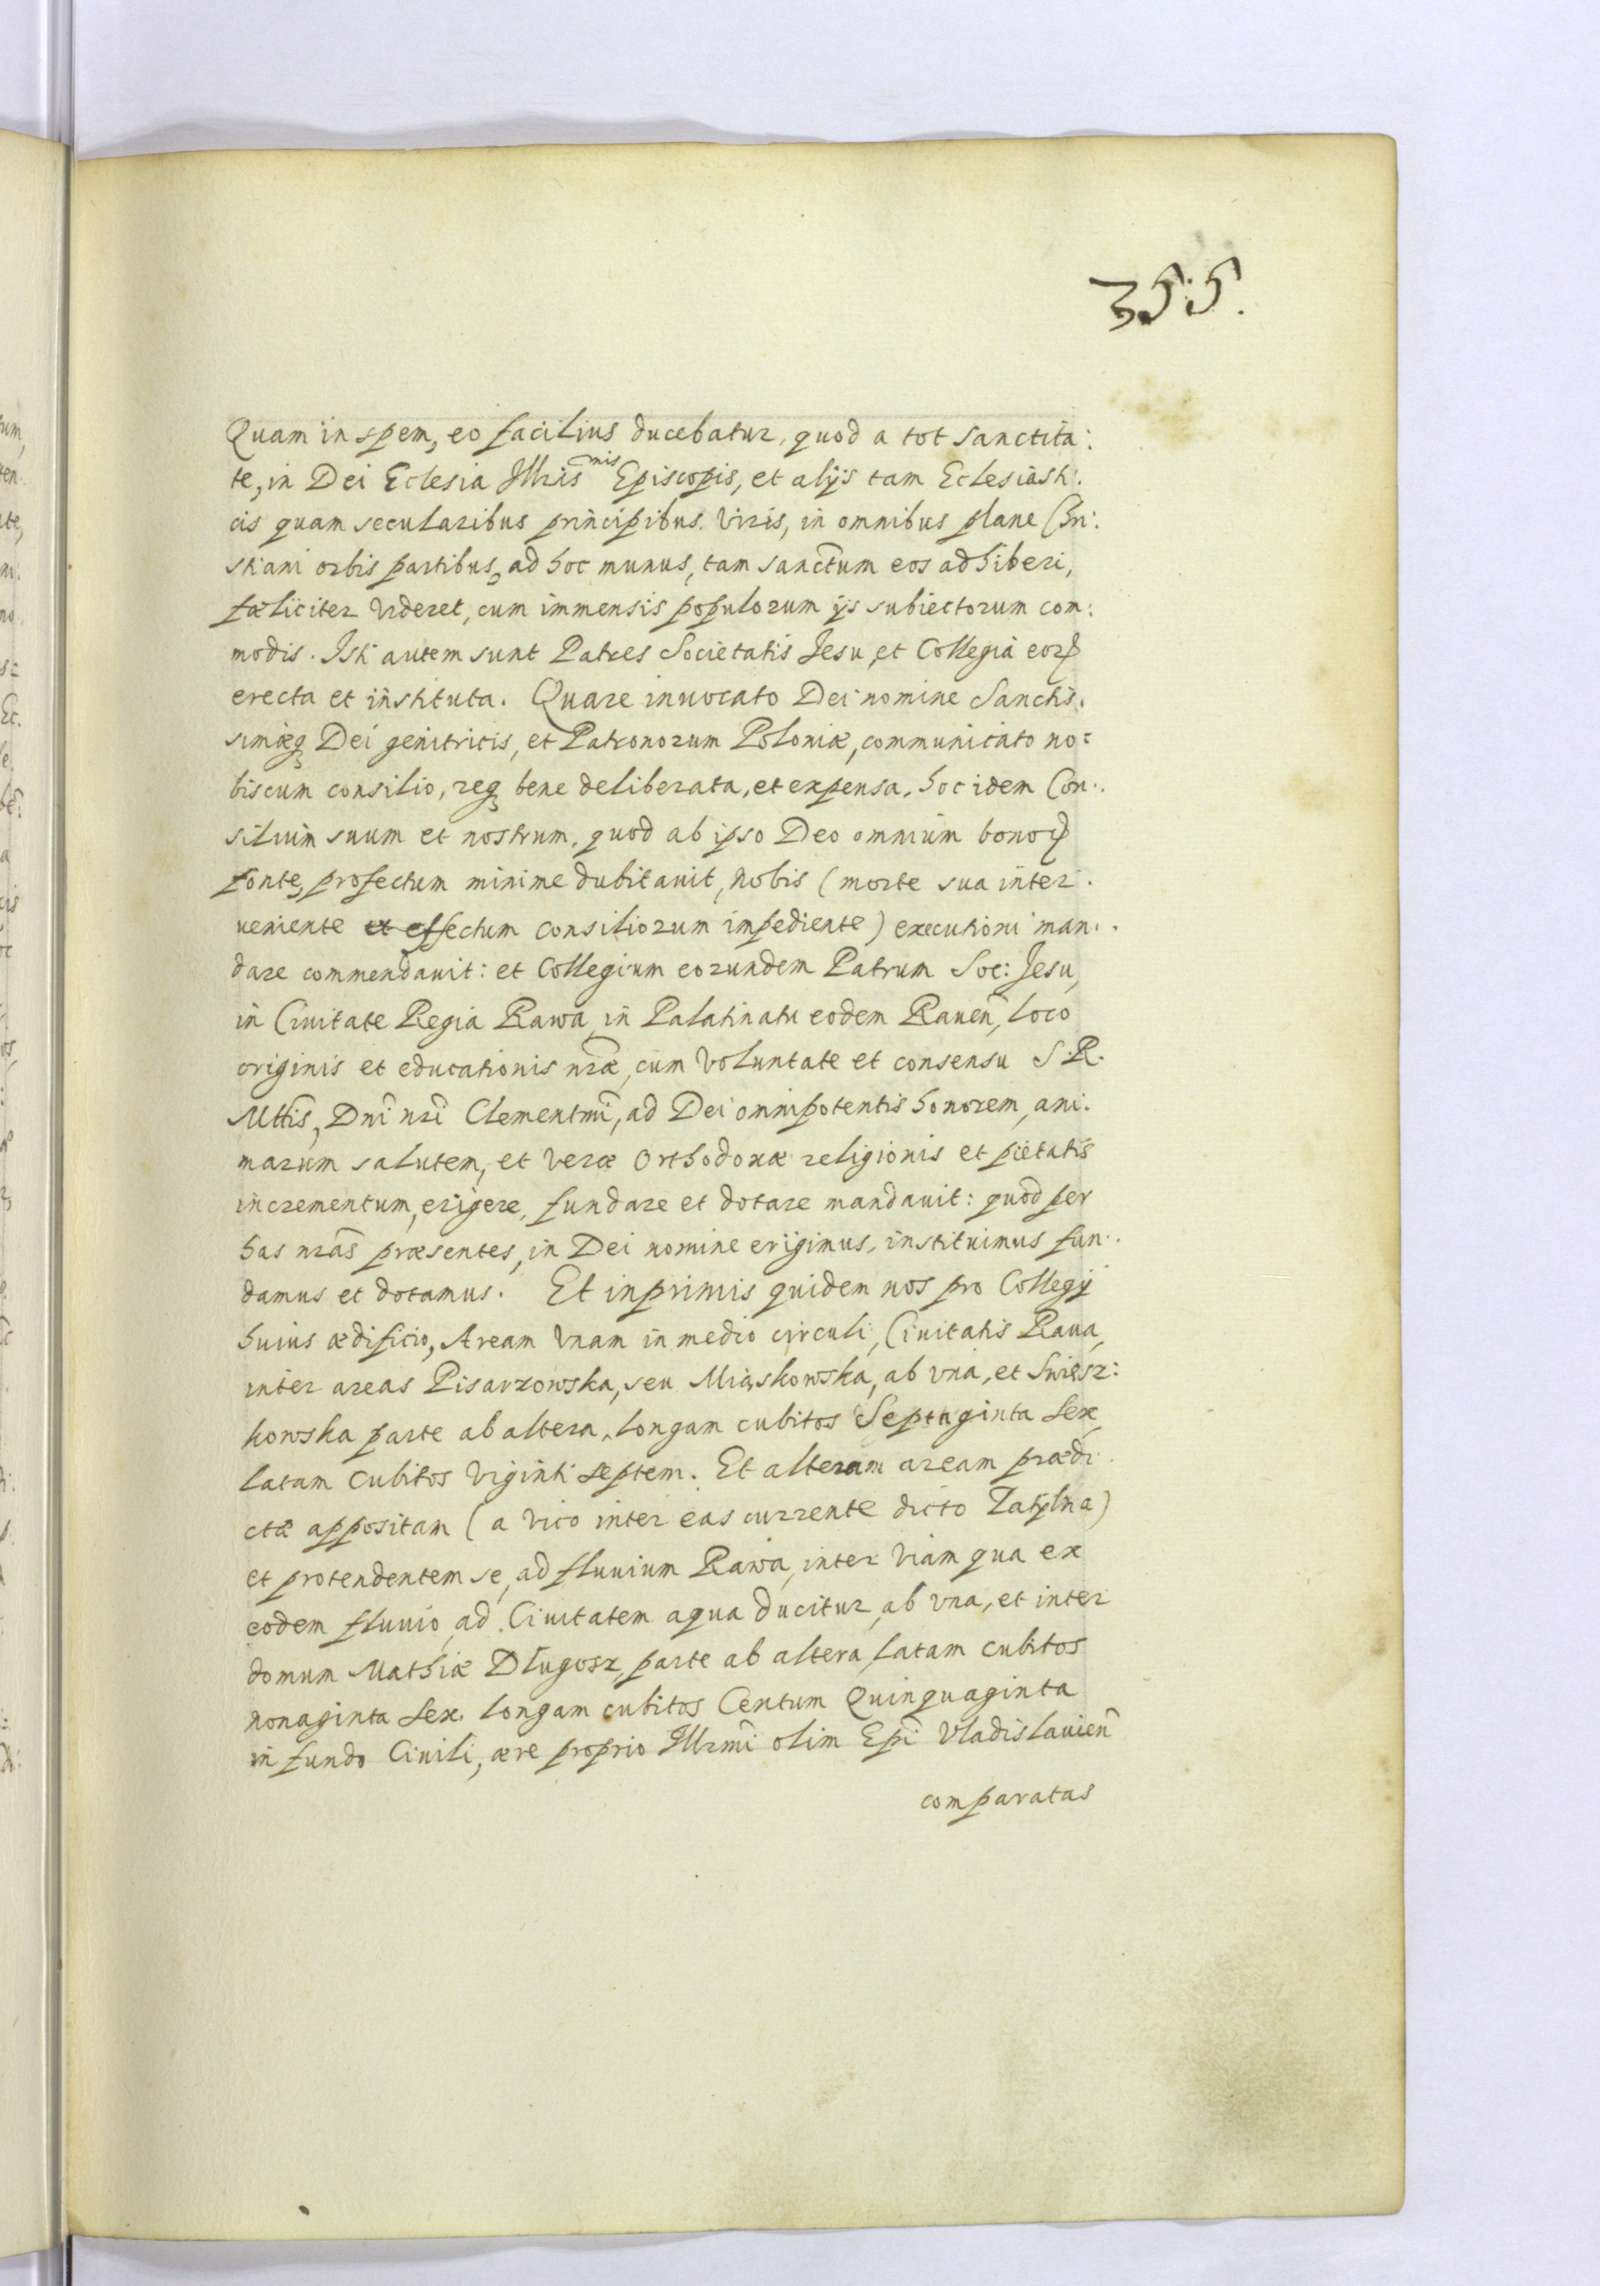 355.
Quam in spem, eo facilius ducebatur, quod a tot sanctita:
te, in Dei Eclesia Illris mis Episcopis, et alijs tam Eclesiasti:
cis quam secularibus principibus viris, in omnibus plane Chri:
stiani orbis partibus, ad hoc munus, tam sanctum eos adhiberi,
fæliciter videret, cum immensis populorum ijs subiectorum com:
modis. Isti autem sunt Patres Societatis Jesu, et Collegia eorꝝ
erecta et instituta. Quare inuocato Dei nomine Sanctis:
simæq; Dei genitricis, et Patronorum Poloniæ, communicato no:
biscum consilio, req; bene deliberata, et expensa, hoc idem Con:
silium suum et nostrum, quod ab ipso Deo omnium bonoꝝ
fonte, profectum minime dubitauit, nobis (morte sua inter:
ueniente et effectum consiliorum impediente) executioni man:
dare commendauit: et Collegium eorundem Patrum Soc: Jesu,
in Ciuitate Regia Rawa, in Palatinatu eodem Rauen̄, loco
originis et educationis nr̄æ, cum voluntate et consensu S. R.
Mttis, Dn̄i nr̄i Clementmi, ad Dei omnipotentis honorem, ani:
marum salutem, et veræ Orthodoxæ religionis et pietatis
incrementum, erigere, fundare et dotare mandauit: quod per
has nr̄as præsentes, in Dei nomine erigimus, instituimus fun:
damus et dotamus. Et inprimis quidem nos pro Collegij
huius ædificio, Aream vnam in medio circuli, Ciuitatis Raua,
inter areas Pisarzowska, seu Miąskowska, ab vna, et Swiesz:
kowska parte ab altera, longam cubitos Septuginta Sex,
latam Cubitos viginti septem. Et alteram aream prædi:
ctæ appositam (a vico inter eas currente dicto Zatylna)
et protendentem se, ad fluuium Rawa, inter viam qua ex
eodem fluuio, ad Ciuitatem aqua ducitur, ab vna, et inter
domum Mathiæ Długosz, parte ab altera, latam cubitos
nonaginta sex. longam cubitos Centum Quinquaginta
in fundo Ciuili, ære proprio Illrmi olim Epī Vladislauien̄
comparatas